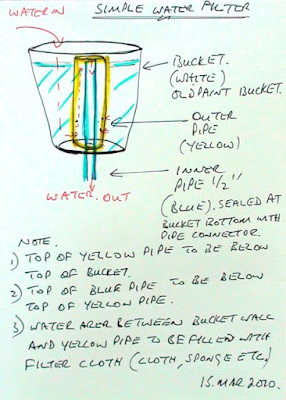 SIMPLE WATER FILTER
WATER IN
BUCKET.
(WHITE)
OLD PAINT BUCKET.
OUTER
PIPE
(YELLOW)
INNER
PIPE 1/2"
(BLUE). SEALED AT
BUCKET BOTTOM WITH
PIPE CONNECTOR
WATER OUT
NOTE.
1) TOP OF YELLOW PIPE TO BE BELOW
TOP OF BUCKET.
2) TOP OF BLUE PIPE TO BE BELOW
TOP OF YELLOW PIPE.
3) WATER AREA BETWEEN BUCKET WALL
AND YELLOW PIPE TO BE FILLED WITH
FILTER CLOTH (CLOTH, SPONGE ETC)
15. MAR 2010.